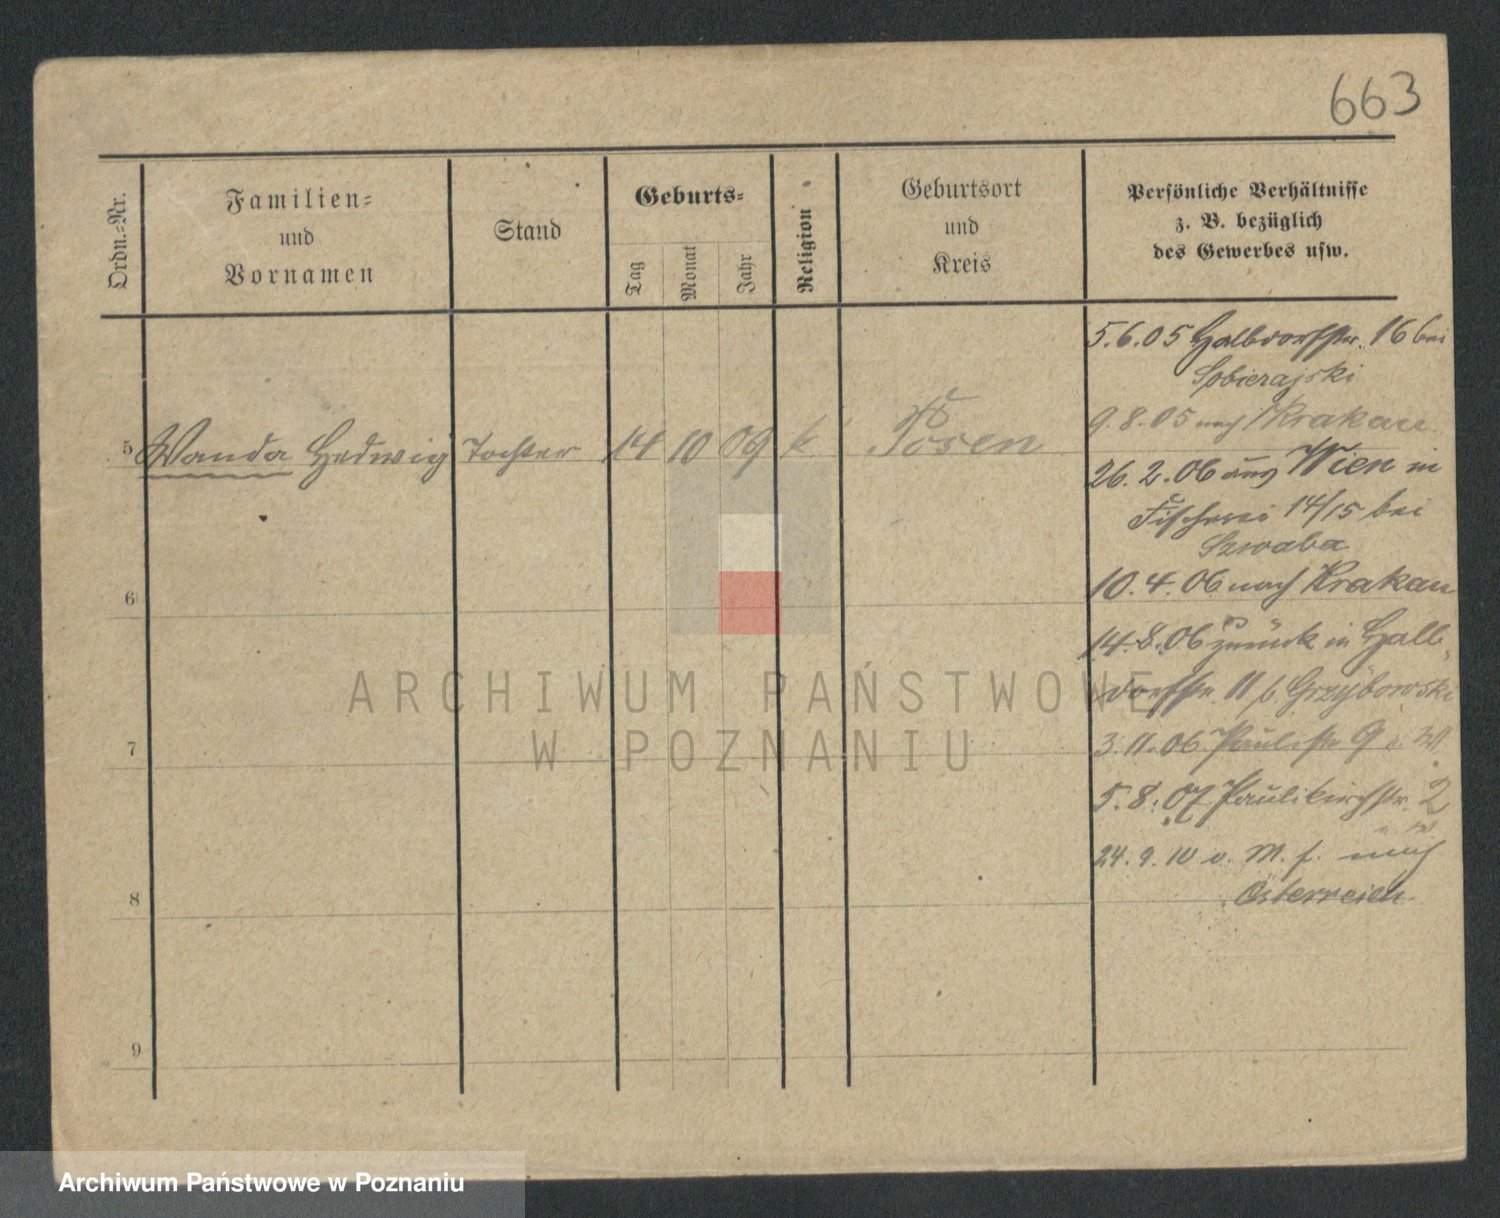 663
Ordn.-Nr.
Familien-
und
Vornamen
Stand
Geburts-
Tag
Monat
Jahr
Religion
Geburtsort
und
Kreis
Persönliche Verhältnisse
z. B. bezüglich
des Gewerbes usw.
5 Wanda Hedwig Tochter 14 10 09 k Posen
6
7
8
9
5.6.05 Halbdorfstr. 16 bei
Sobierajski
9.8.05 nach Krakau
26.2.06 aus Wien in
Fischerei 14/15 bei
Szwaba
10.4.06 nach Krakau
14.8.06 zurück in Halb-
dorfstr. 11 b. Grzybowski
3.11.06 Paulistr 9
5.8.07 Paulikirchstr. 2
24.9.10 v. M. f. nach
Österreich
ARCHIWUM PAŃSTWOWE
W POZNANIU
Archiwum Państwowe w Poznaniu